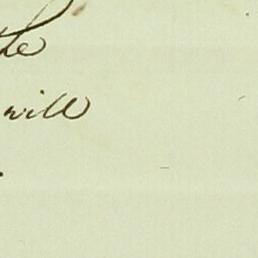 the
will